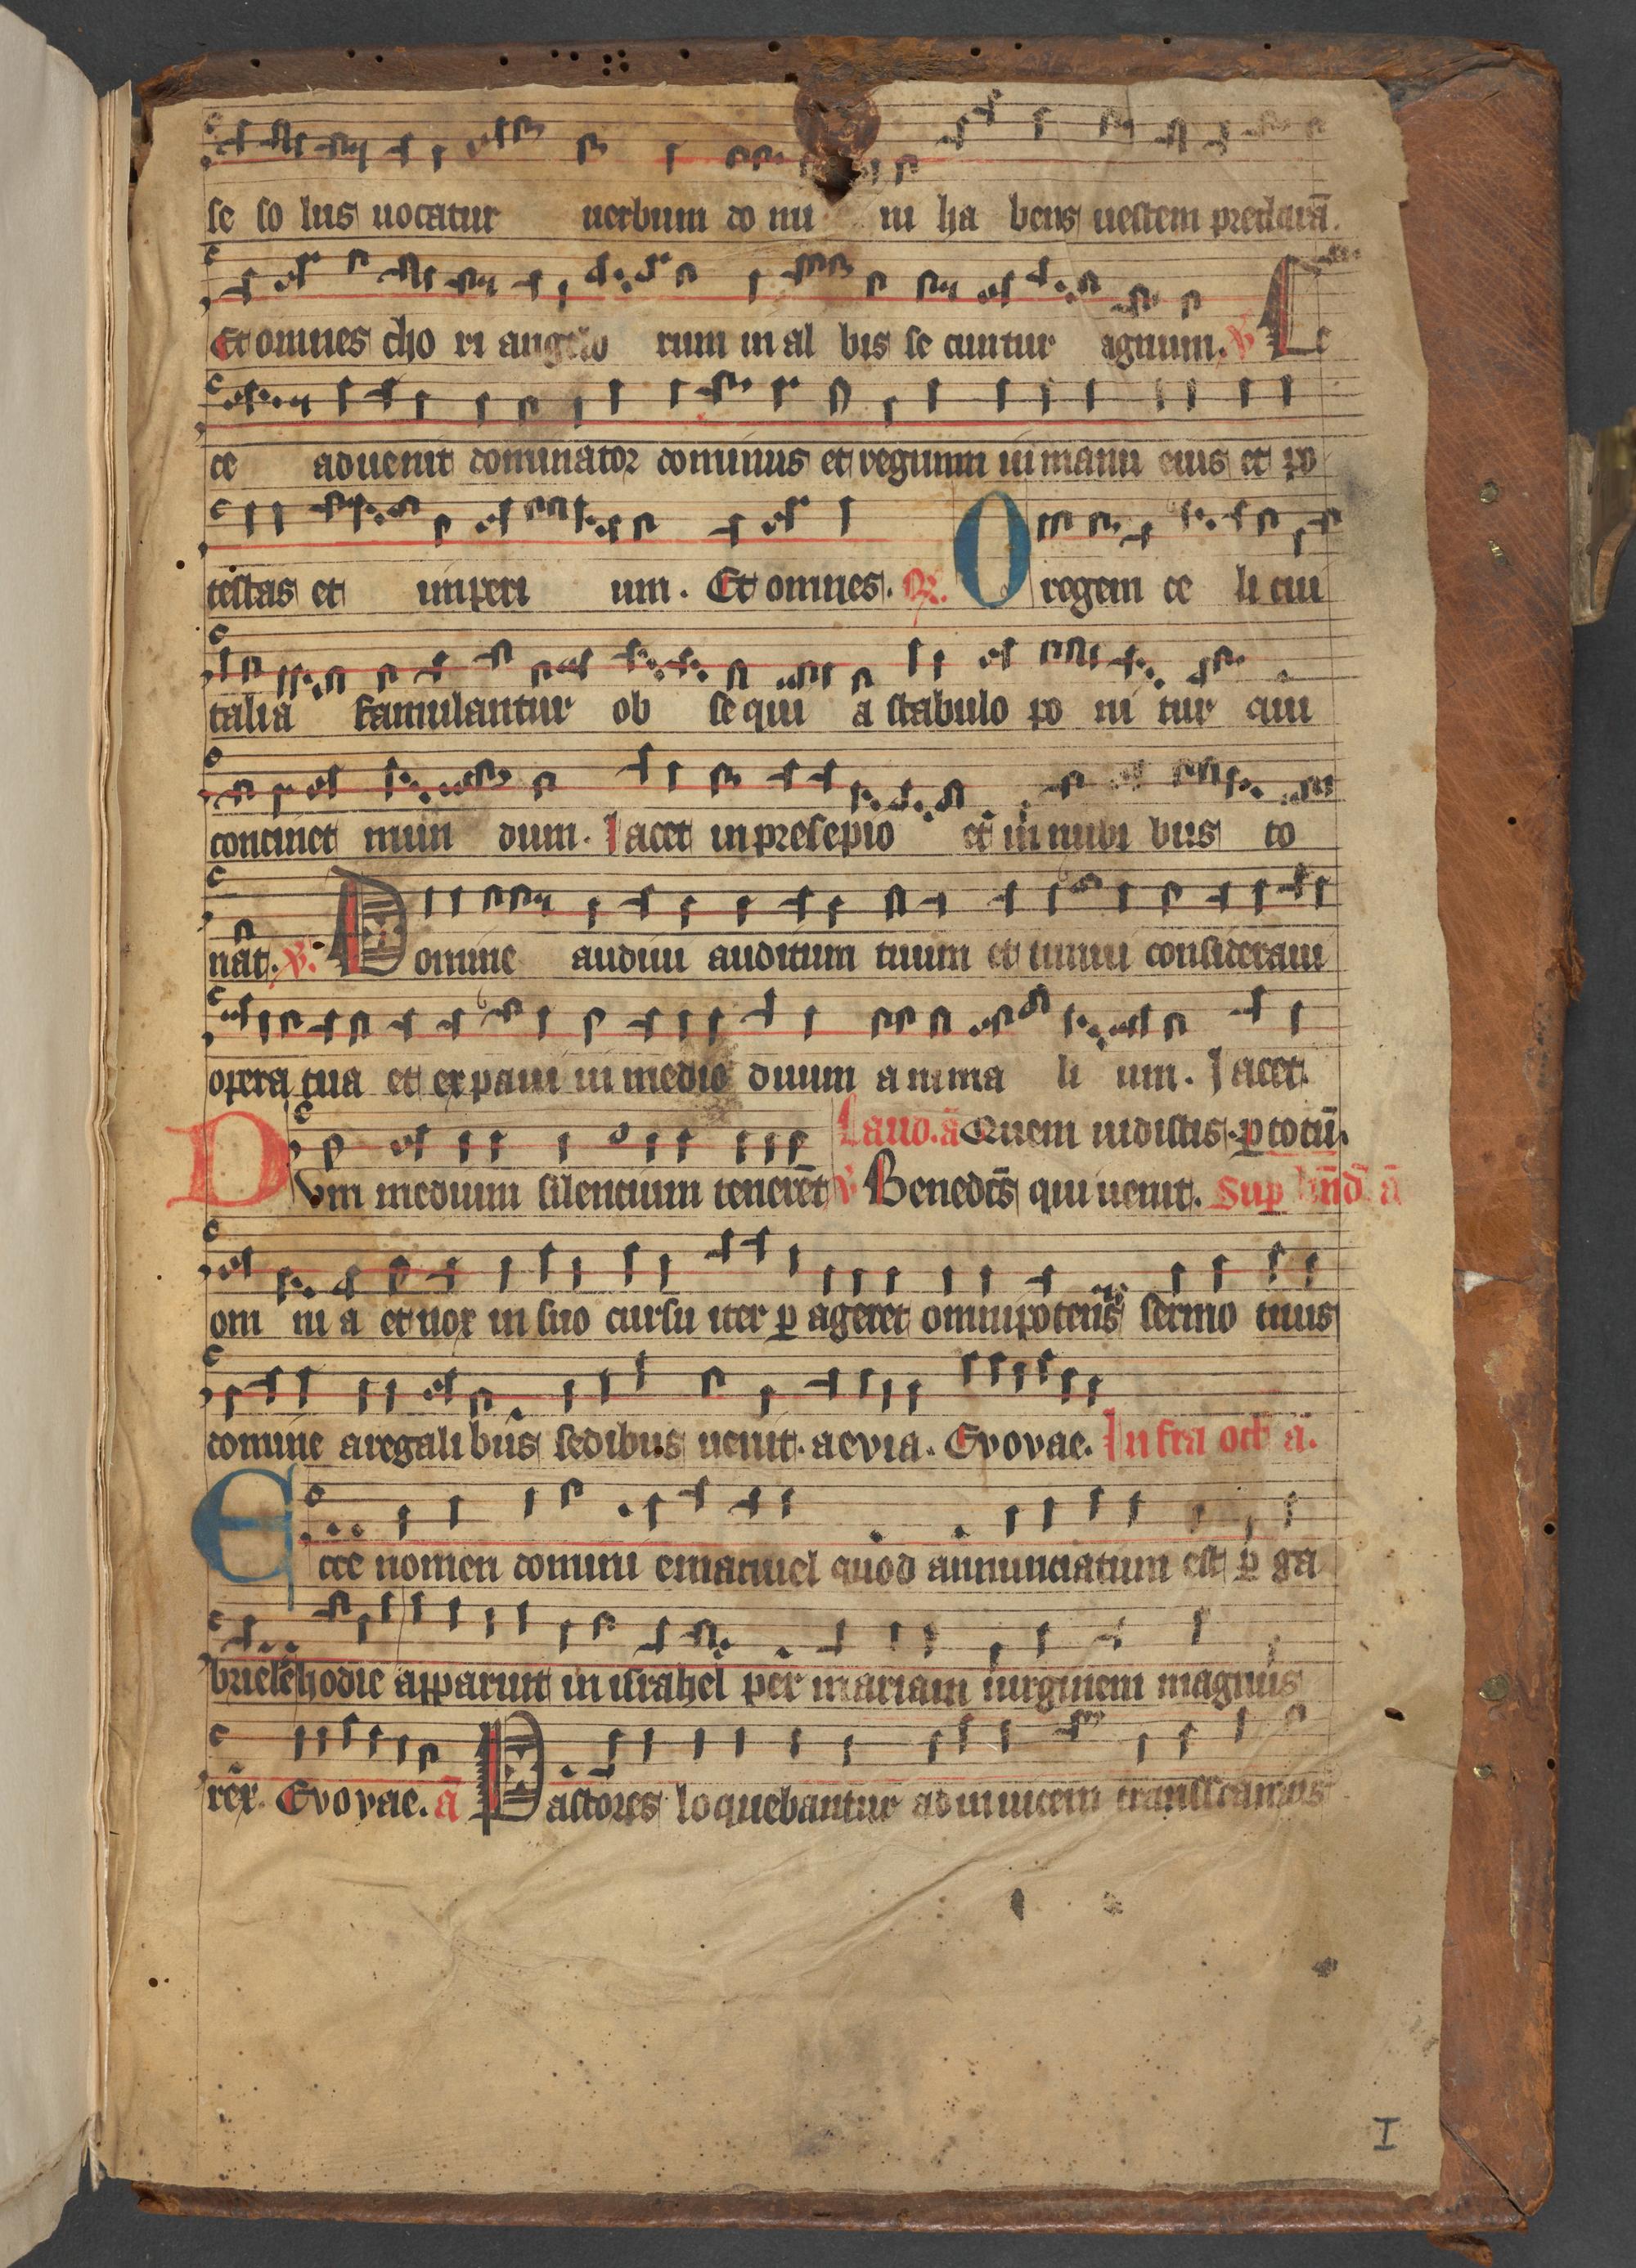 se so lus uocatur uerbum do mi ni ha bens uestem preclarā.
Et omnes cho ri angelo rum in al bis se cuntur agnum. V Ec
ce aduenit dominator dominus et regnum in manu eius et po
testas et imperi um. Et omnes. R. O regem ce li cui
talia famulantur ob se qui a stabulo po ni tur qui
continet mun dum. Iacet in presepio et in nubi bus to
nat. V. Domine audiui auditum tuum et timui consideraui
opera tua et expaui in medio duum a nima li um. Iacet.
Laud. ā Quem uidistis. p totū.
Dum medium silencium tenerēt V Benedc̄s qui uenit. Sup bn̄d ā
om ni a et nox in suo cursu iter p ageret omnipotens sermo tuus
domine a regali bus sedibus uenit. aevia. Evovae. Infra oct ā.
Ecce nomen domini emanuel quod annunciatum est p ga
briele hodie apparuit in israhel per mariam uirginem magnus
rex. Evovae. ā Pastores loquebantur ad inuicem transeamus
I